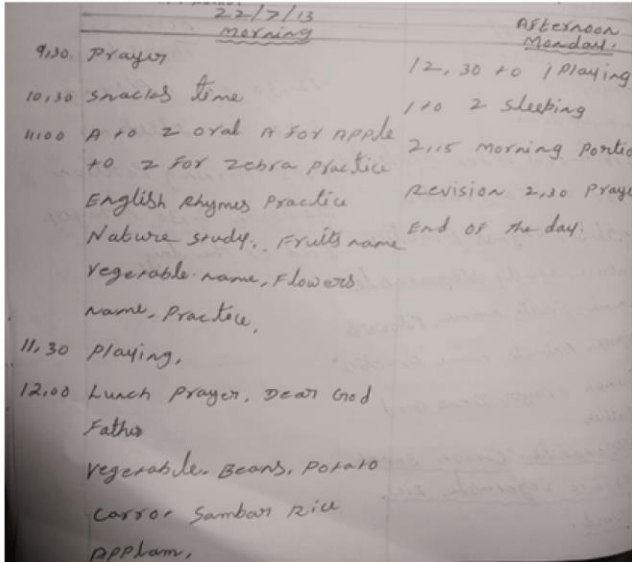 22/7/13
Morning
9.30 Prayer
10,30 snacks time
11.00 A to Z oral A for Apple
to Z for Zebra practice
English Rhymes Practice
Nature study, Fruits name
vegetable name, Flowers
name, Practice,
11,30 Playing,
12,00 Lunch Prayer, Dear God
Father
vegetable. Beans, Potato
Carrot Sambar Rice
Applam,
Afternoon
Monday.
12,30 to 1 Playing
1 to 2 sleeping
2,15 Morning Portio
Revision 2,30 Praye
End of the day.